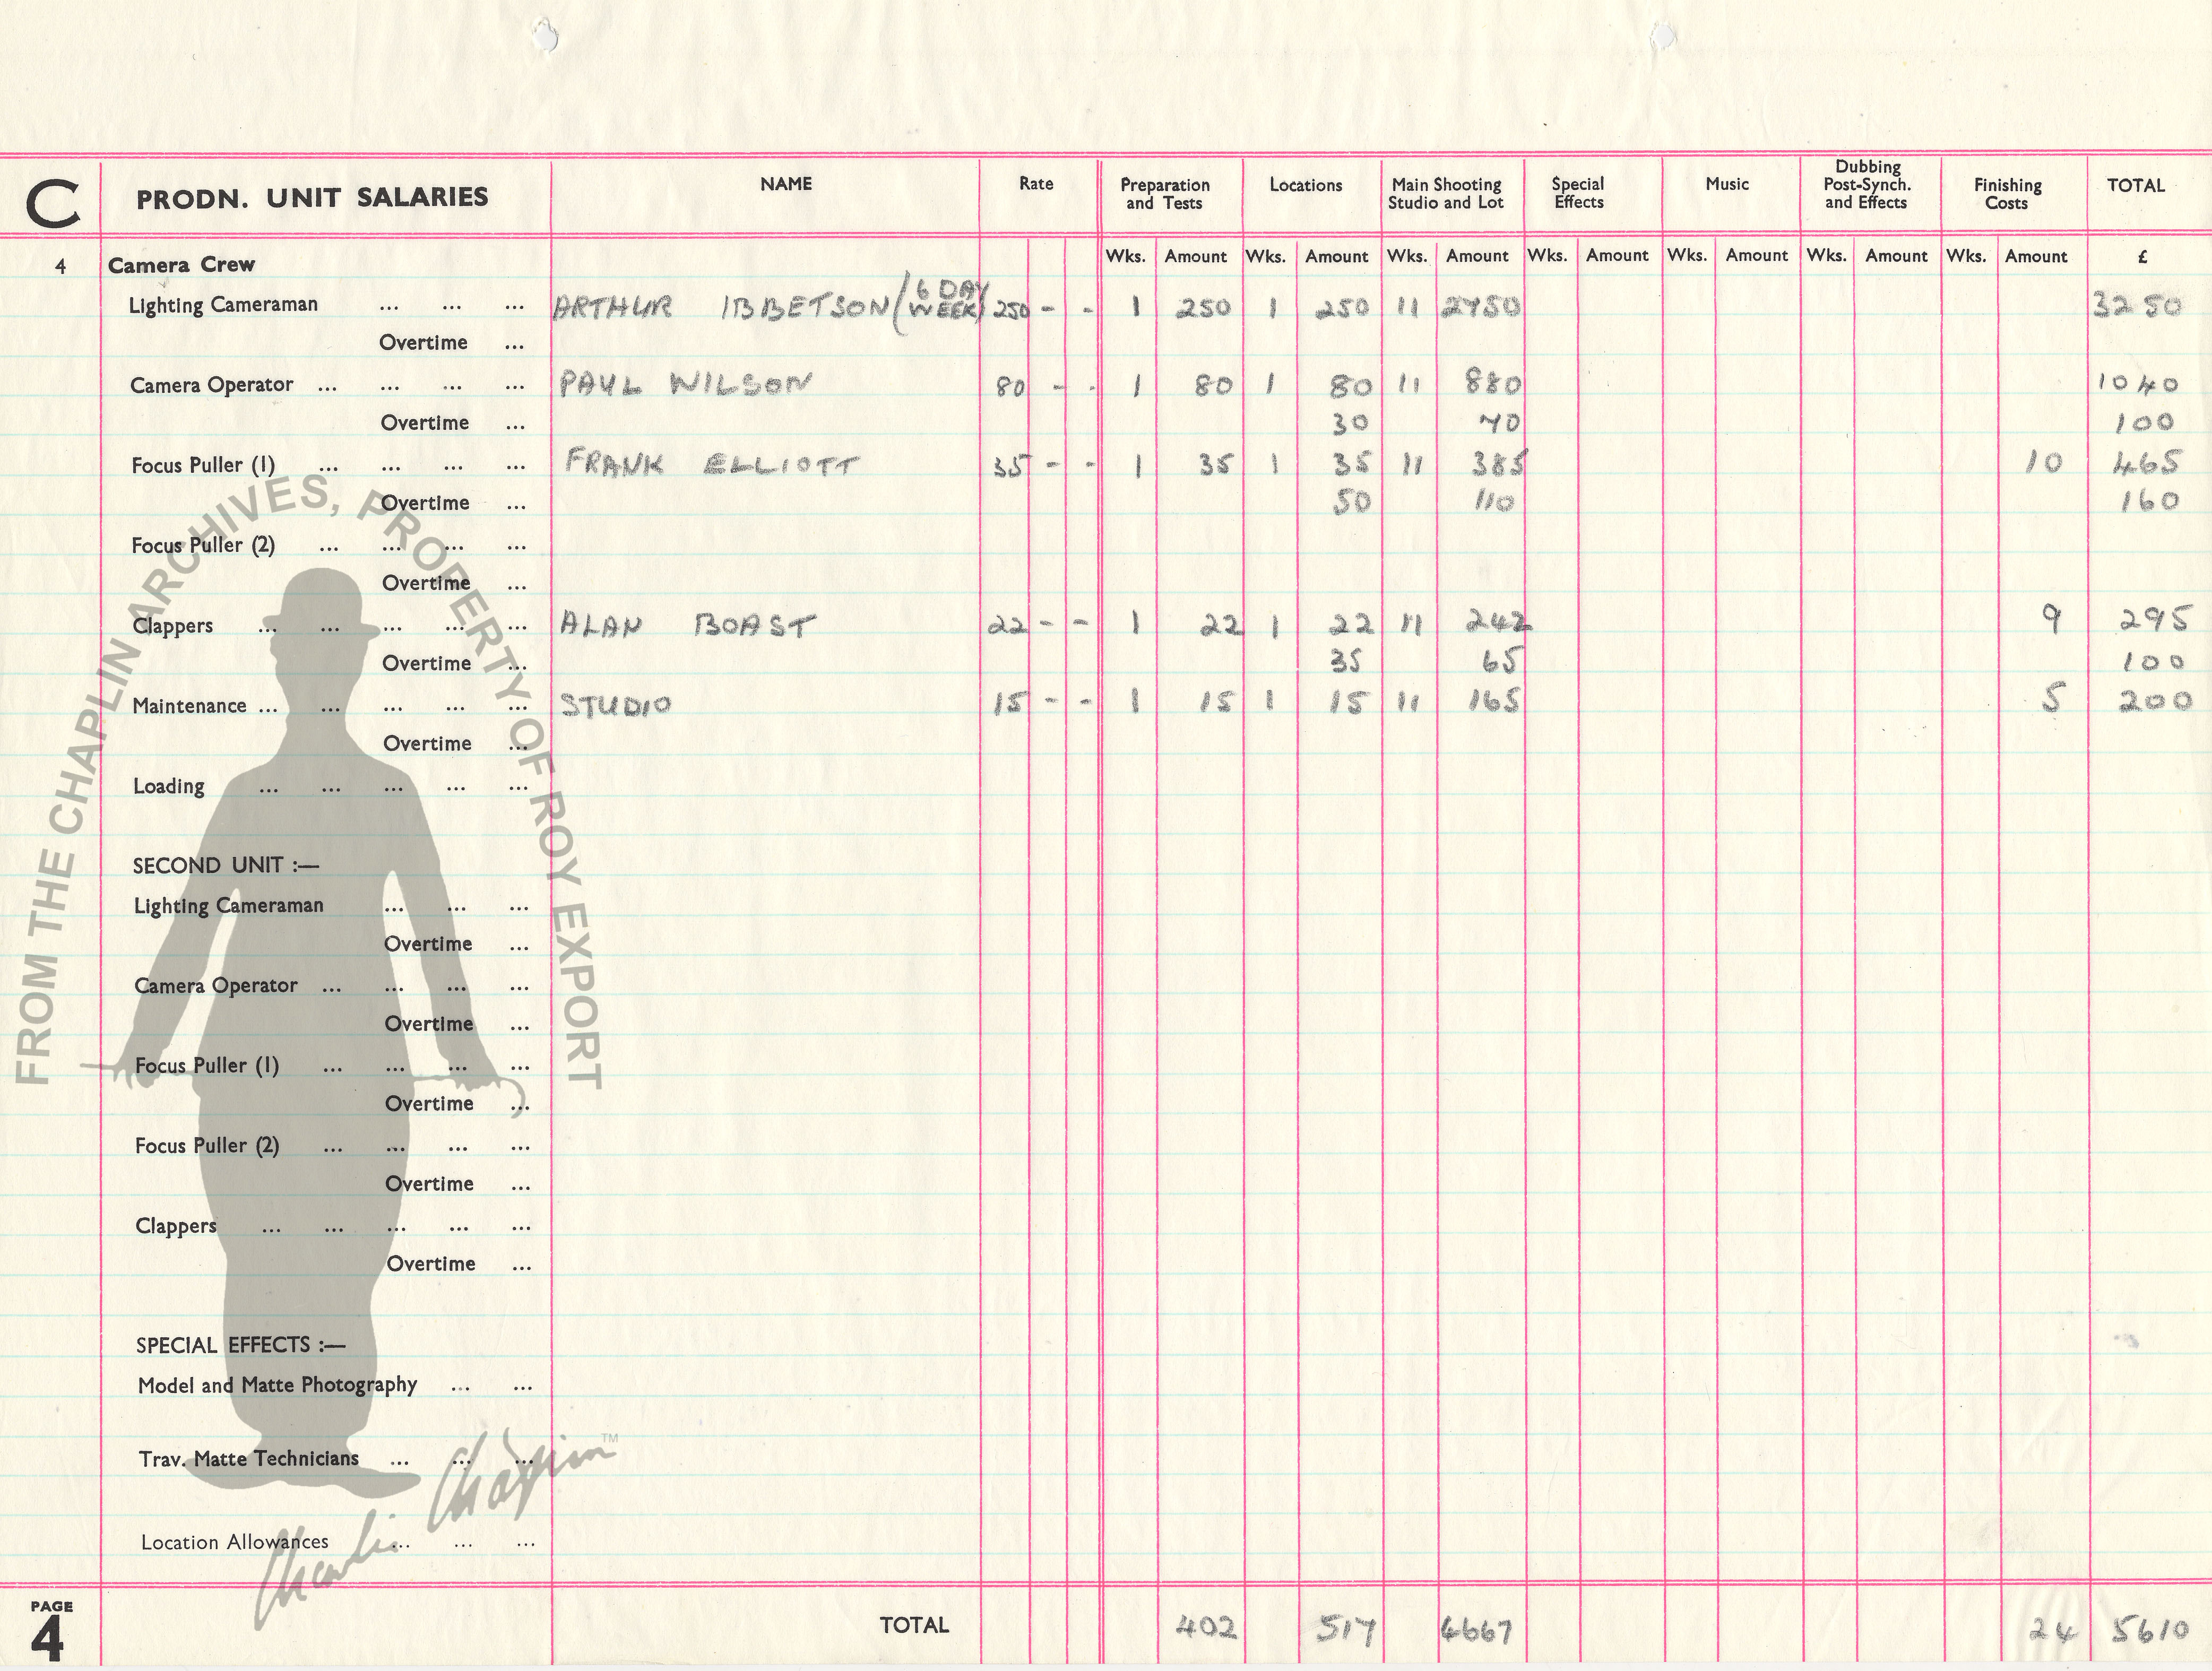 C PRODN. UNIT SALARIES NAME Rate Preparation and Tests Locations Main Shooting Studio and Lot Special Effects Music Dubbing Post-Synch. and Effects Finishing Costs TOTAL
Wks. Amount Wks. Amount Wks. Amount Wks. Amount Wks. Amount Wks. Amount Wks. Amount £
4 Camera Crew
Lighting Cameraman ... ... ... ARTHUR IBBETSON (6 DAY WEEK) 250 - - 1 250 1 250 11 2750 3250
Overtime ...
Camera Operator ... ... ... ... PAUL WILSON 80 - - 1 80 1 80 11 880 1040
Overtime ... 30 70 100
Focus Puller (1) ... ... ... ... FRANK ELLIOTT 35 - - 1 35 1 35 11 385 10 465
Overtime ... 50 110 160
Focus Puller (2) ... ... ... ...
Overtime ...
Clappers ... ... ... ... ... ALAN BOAST 22 - - 1 22 1 22 11 242 9 295
Overtime ... 35 65 100
Maintenance ... ... ... ... ... STUDIO 15 - - 1 15 1 15 11 165 5 200
Overtime ...
Loading ... ... ... ... ...
SECOND UNIT :—
Lighting Cameraman ... ... ...
Overtime ...
Camera Operator ... ... ... ...
Overtime ...
Focus Puller (1) ... ... ... ...
Overtime ...
Focus Puller (2) ... ... ... ...
Overtime ...
Clappers ... ... ... ... ...
Overtime ...
SPECIAL EFFECTS :—
Model and Matte Photography ... ...
Trav. Matte Technicians ... ... ...
Location Allowances ... ... ...
PAGE 4 TOTAL 402 517 4667 24 5610
FROM THE CHAPLIN ARCHIVES, PROPERTY OF ROY EXPORT
Charlie Chaplin™